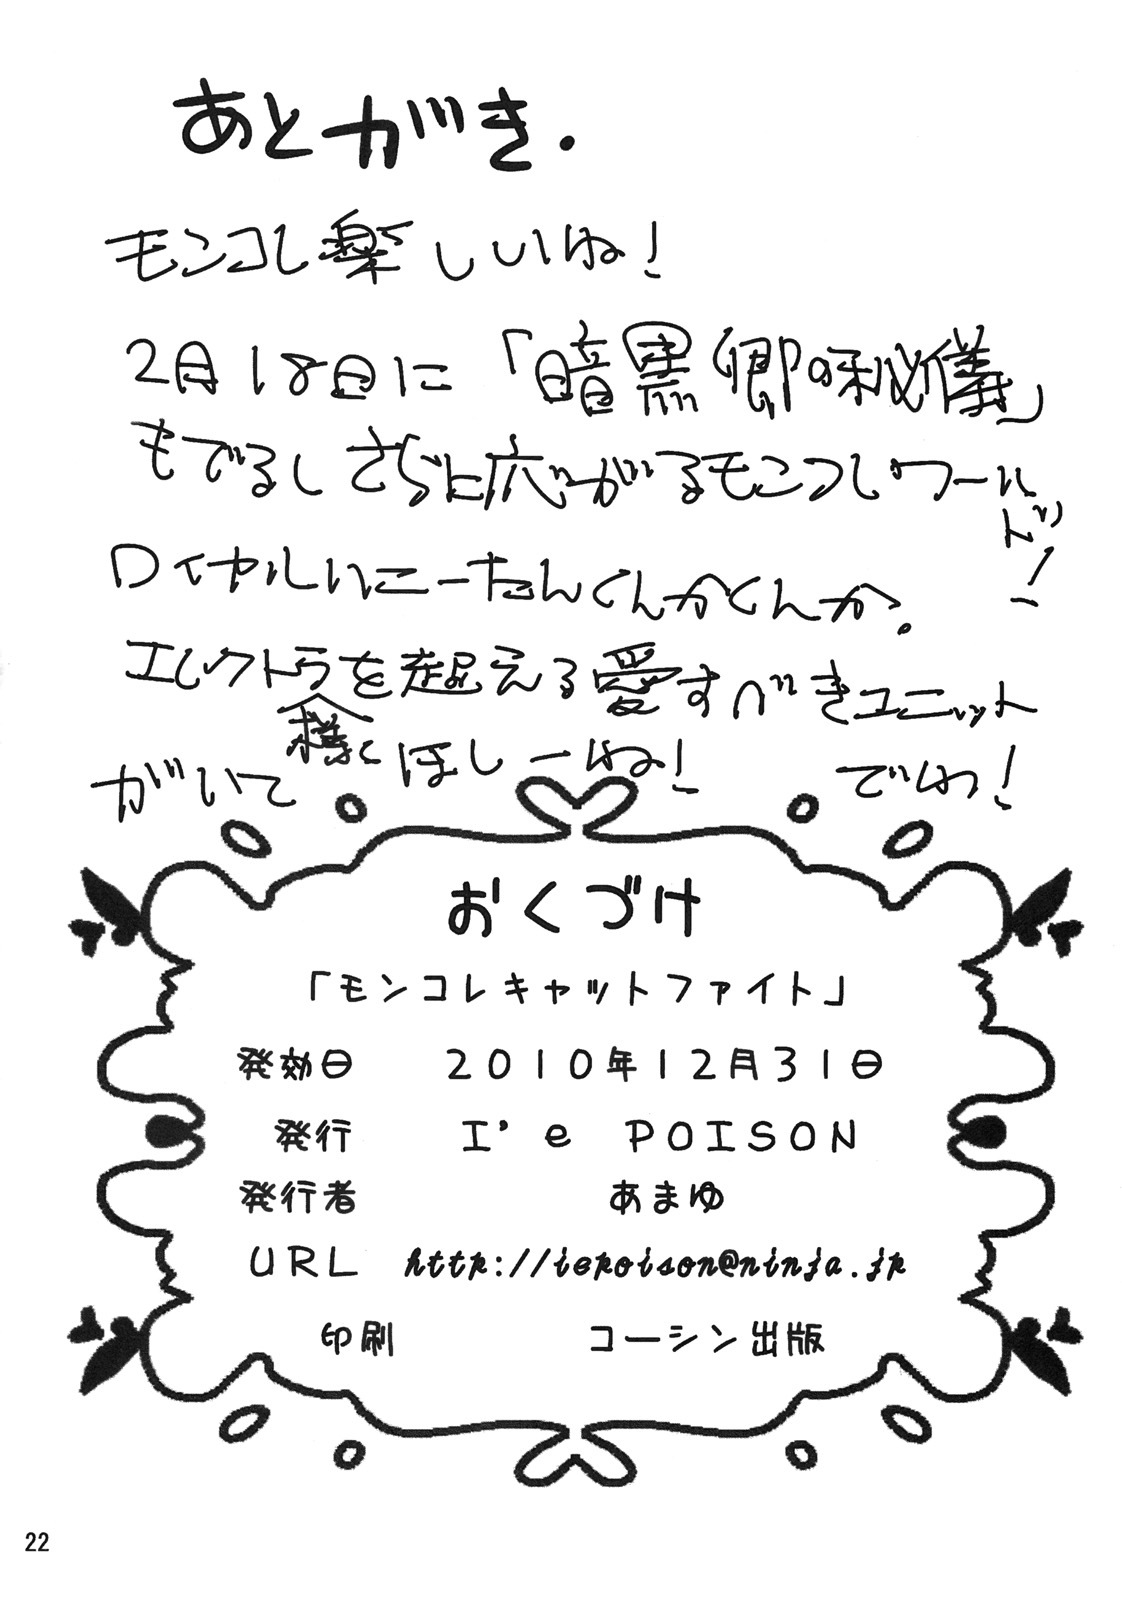 あとがき.
モンコレ楽しいね!
2月18日に「暗黒卿の秘儀」
もでるしさらに広がるモンコレワールド!
ロイヤルにーたんくんかくんか。
エレクトラ様を超える愛すべきユニット
がいてほしーね! でわ!
おくづけ
「モンコレキャットファイト」
発効日 2010年12月31日
発行 I'e POISON
発行者 あまゆ
URL http://iepoison@ninja.jp
印刷 コーシン出版
22